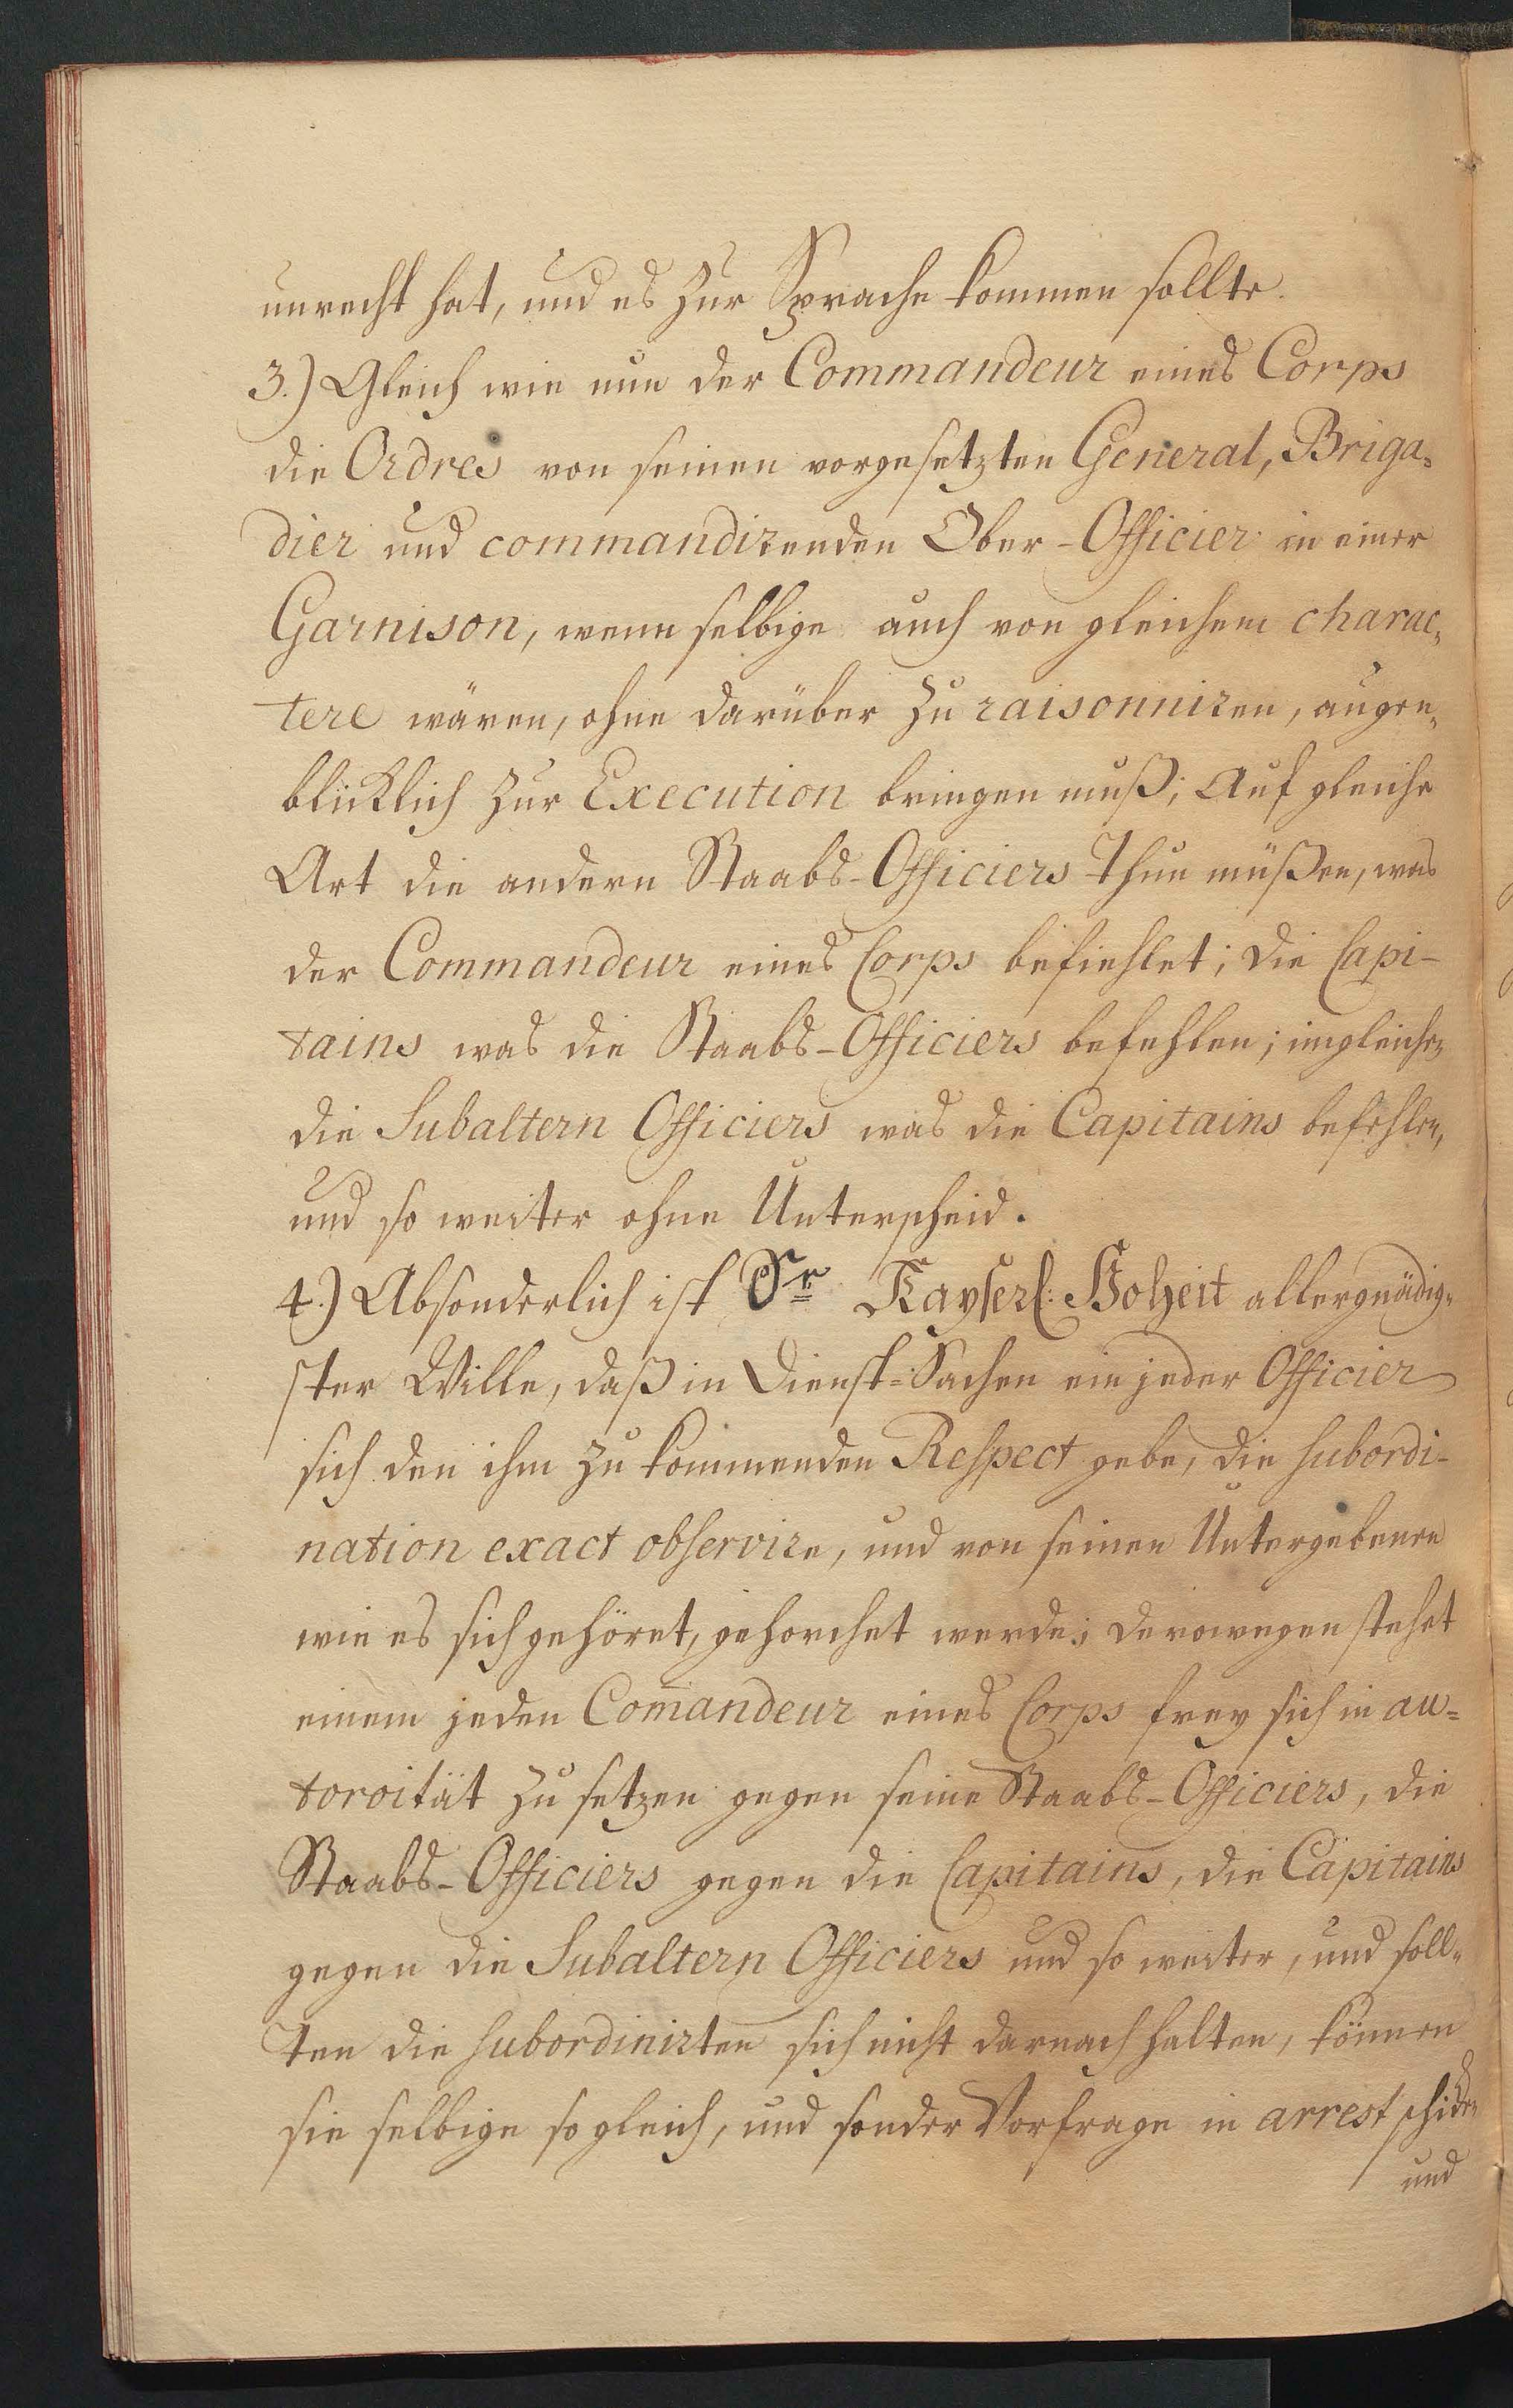 unrecht hat, und es zur Sprache kommen sollte.
3.) Gleich wie nun der Commandeur eines Corps
die Ordres von seinen vorgesetzten General, Briga-
dier und commandirenden Ober-Officier in einer
Garnison, wenn selbige auch von gleichem charac-
tere wären, ohne darüber zu raisonniren, augen-
blicklich zur Execution bringen muß; Auf gleiche
Art die andern Staabs-Officiers thun müßen, was
der Commandeur eines Corps befiehlet; die Capi-
tains was die Staabs-Officiers befehlen; imgleichen
die Subaltern Officiers was die Capitains befehlen,
und so weiter ohne Unterscheid.
4.) Absonderlich ist Sr. Kayserl: Hoheit allergnädig-
ster Wille, daß in Dienst-Sachen ein jeder Officier
sich den ihm zu kommenden Respect gebe, die subordi-
nation exact observire, und von seinen Untergebenen
wie es sich gehöret, gehorchet werde; derowegen stehet
einem jeden Com̄andeur eines Corps frey sich in au-
toroität zu setzen gegen seine Staabs-Officiers, die
Staabs-Officiers gegen die Capitains, die Capitains
gegen die Subaltern Officiers und so weiter, und soll-
ten die subordinirten sich nicht darnach halten, können
sie selbige so gleich, und sonder Vorfrage in arrest schicken
und